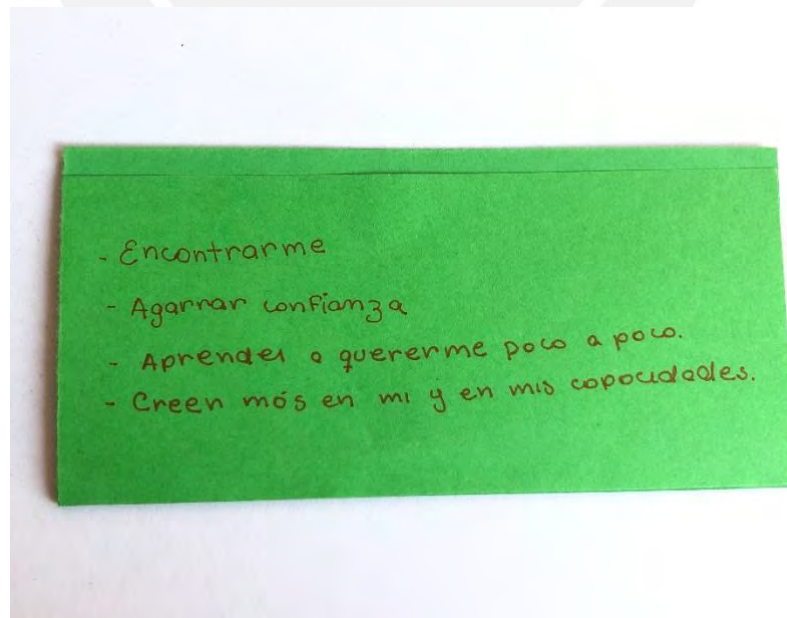 - Encontrarme
- Agarrar confianza
- Aprender a quererme poco a poco.
- Creer más en mi y en mis capacidades.